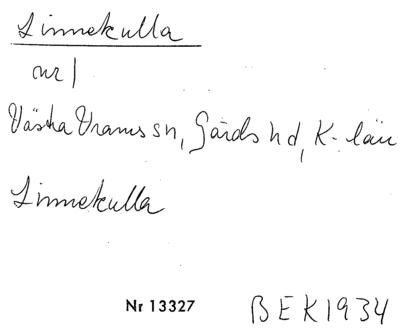 Linnekulla
nr 1
Västra Vrams sn, Gärds hd, K-län
Linnekulla
Nr 13327 BEK 1934